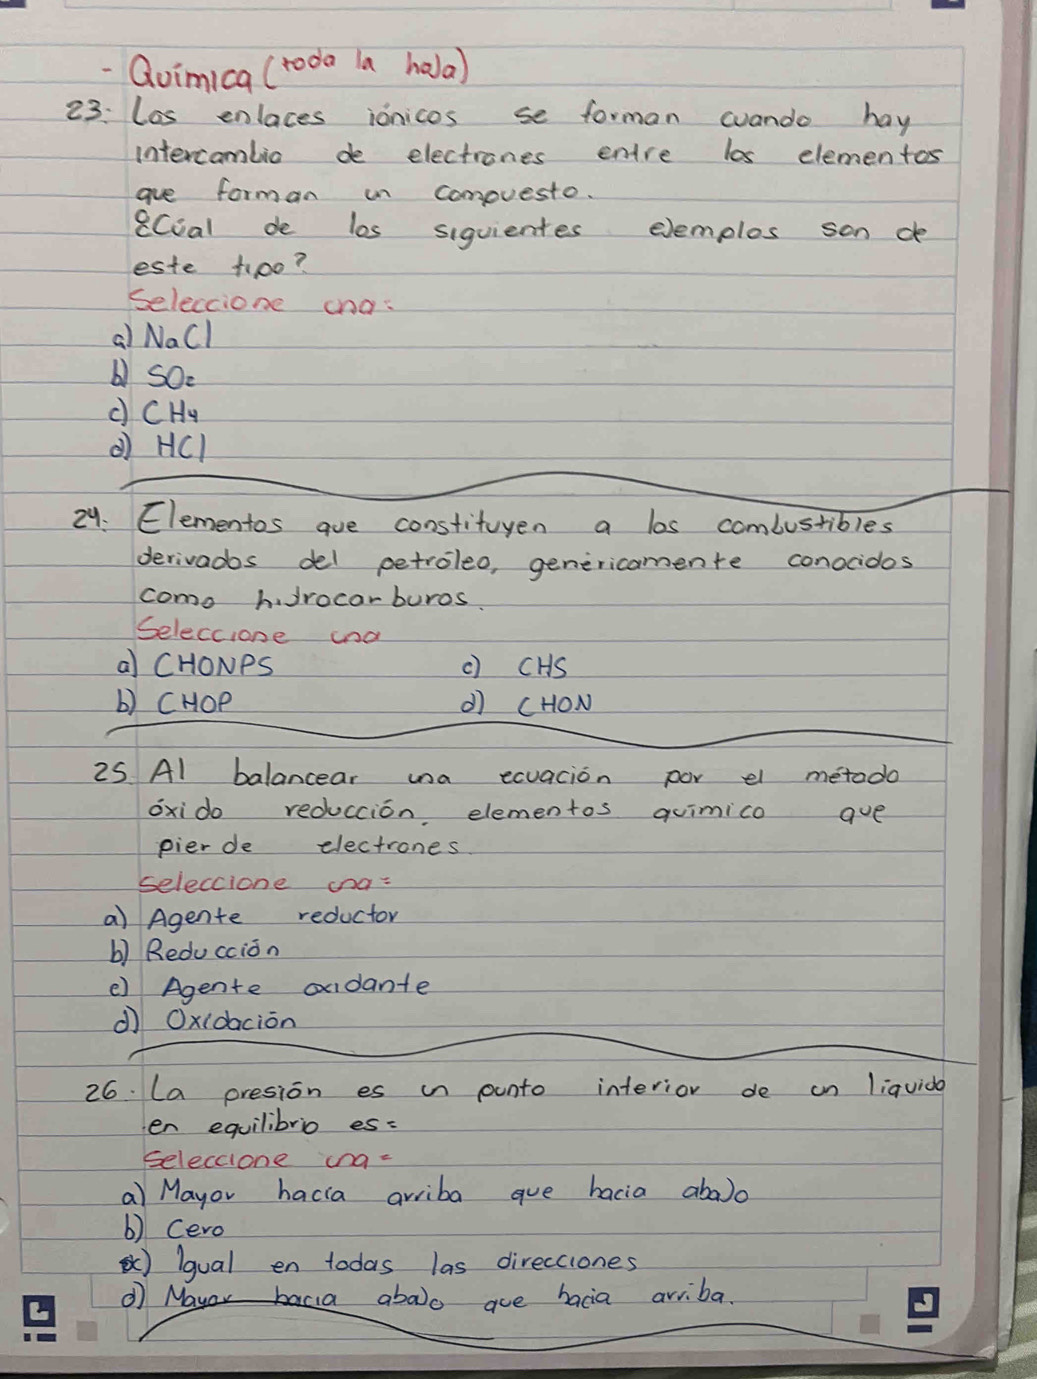 - Química (toda la haJa)
23: Los enlaces iónicos se forman cuando hay
intercambio de electrones entre los elementos
que forman un compuesto.
¿Cúal de los siguientes eJemplos son de
este tipo?
Seleccione una:
a) NaCl
b) SO2
c) CH4
d) HCl
24: Elementos que constituyen a los combustibles
derivados del petróleo, genéricamente conocidos
como hidrocarburos.
Seleccione una
a) CHONPS c) CHS
b) CHOP d) CHON
25. Al balancear una ecuación por el método
óxido reducción, elementos químico que
pierde electrones.
Seleccione una:
a) Agente reductor
b) Reducción
c) Agente oxidante
d) Oxidación
26. La presión es un punto interior de un líquido
en equilibrio es:
Seleccione una:
a) Mayor hacía arriba que hacia abaJo
b) Cero
c) Igual en todas las direcciones
d) Mayor hacia abaJo que hacia arriba.